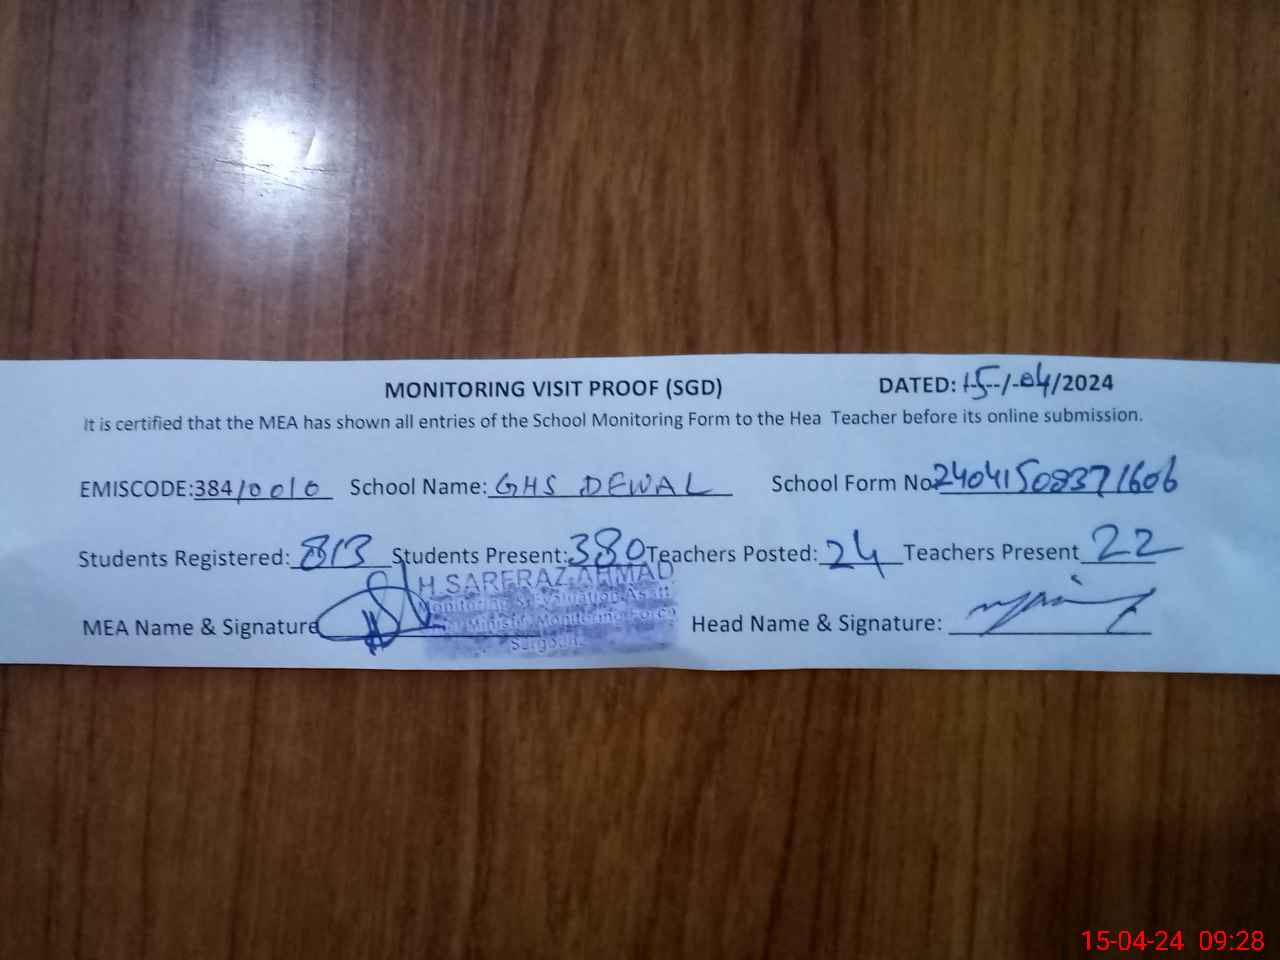 MONITORING VISIT PROOF (SGD) DATED: 15-/-04/2024
It is certified that the MEA has shown all entries of the School Monitoring Form to the Hea Teacher before its online submission.
EMISCODE:384/0010 School Name: GHS DEWAL School Form No 24041508371606
Students Registered: 813 Students Present: 380 Teachers Posted: 24 Teachers Present 22
H.SARFRAZ AHMAD
Monitoring & Evaluation Asstt
Minister Monitoring Force
Sargodha
MEA Name & Signature Head Name & Signature:
15-04-24 09:28